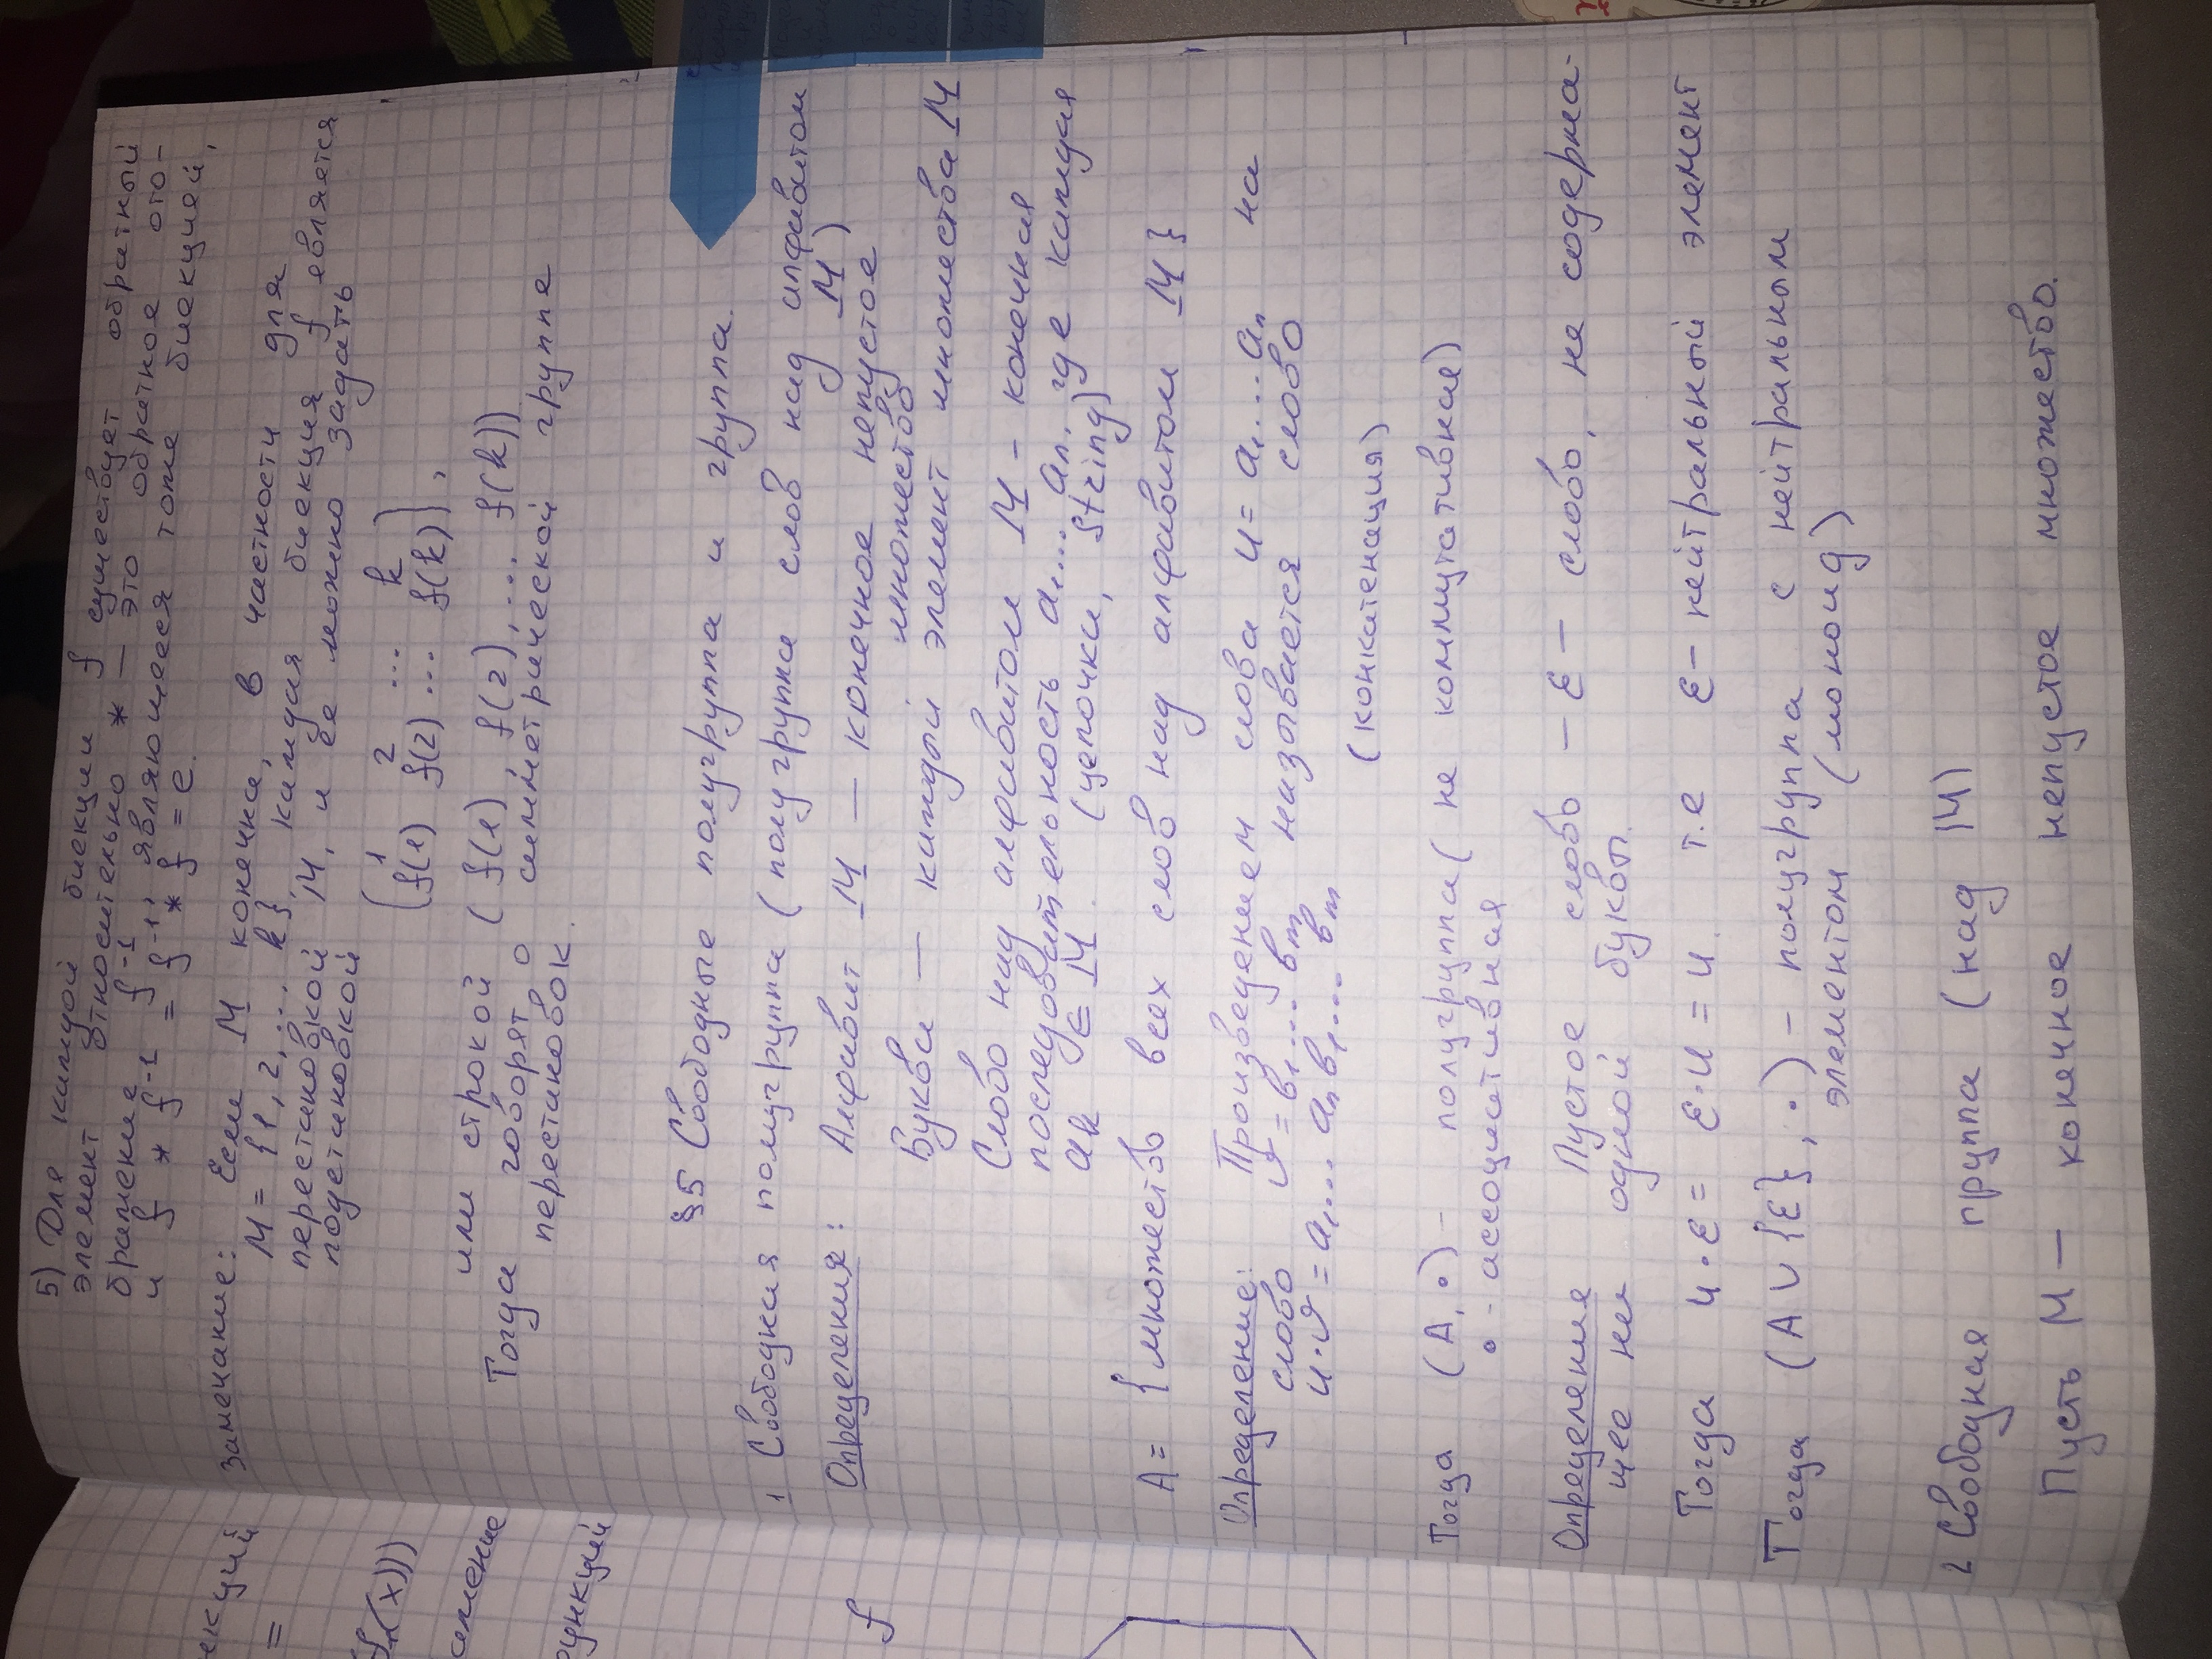 5) Для каждой биекции f существует обратный
элемент относительно * — это обратное ото-
бражение f⁻¹, являющееся тоже биекцией,
и f * f⁻¹ = f⁻¹ * f = e.
Замечание: Если M конечна, в частности для
M = {1, 2, ... k}, каждая биекция f является
перестановкой M, и ее можно задать
подстановкой
(1 2 ... k
f(1) f(2) ... f(k)),
или строкой (f(1), f(2), ... f(k))
Тогда говорят о симметрической группе
перестановок.
§5 Свободные полугруппа и группа.
1 Свободная полугруппа (полугруппа слов над алфавитом
M)
Определения: Алфавит M — конечное непустое
множество
Буква — каждый элемент множества M
Слово над алфавитом M – конечная
последовательность a₁... aₙ, где каждая
aₖ ∈ M. (цепочка, String)
A = {множество всех слов над алфавитом M}
Определение: Произведением слова u = a₁...aₙ на
слово v = b₁... bₘ называется слово
u·v = a₁... aₙ b₁... bₘ
(конкатенация)
Тогда (A, •) – полугруппа (не коммутативная)
• - ассоциативная
Определение Пустое слово — ε — слово, не содержа-
щее ни одной буквы.
Тогда u·ε = ε·u = u. т.е ε – нейтральный элемент
Тогда (A ∪ {ε}, ·) – полугруппа с нейтральным
элементом (моноид)
2 Свободная группа (над M)
Пусть M — конечное непустое множество.
екций
=
(x)))
ажение
функций
f